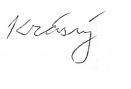 Krásný